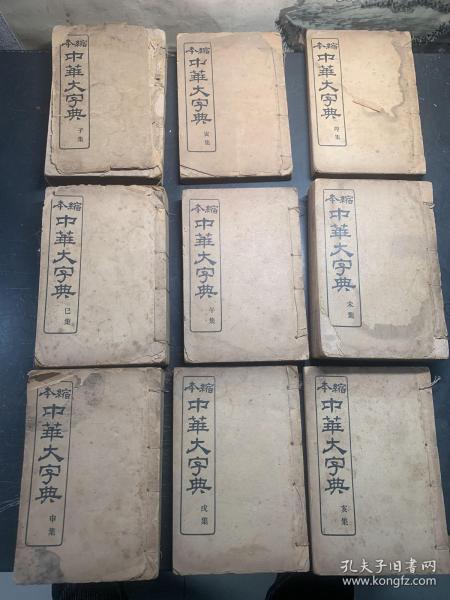 縮本
中華大字典
子集
縮本
中華大字典
寅集
縮本
中華大字典
卯集
縮本
中華大字典
巳集
縮本
中華大字典
午集
縮本
中華大字典
未集
縮本
中華大字典
申集
縮本
中華大字典
戌集
縮本
中華大字典
亥集
孔夫子旧书网
www.kongfz.com